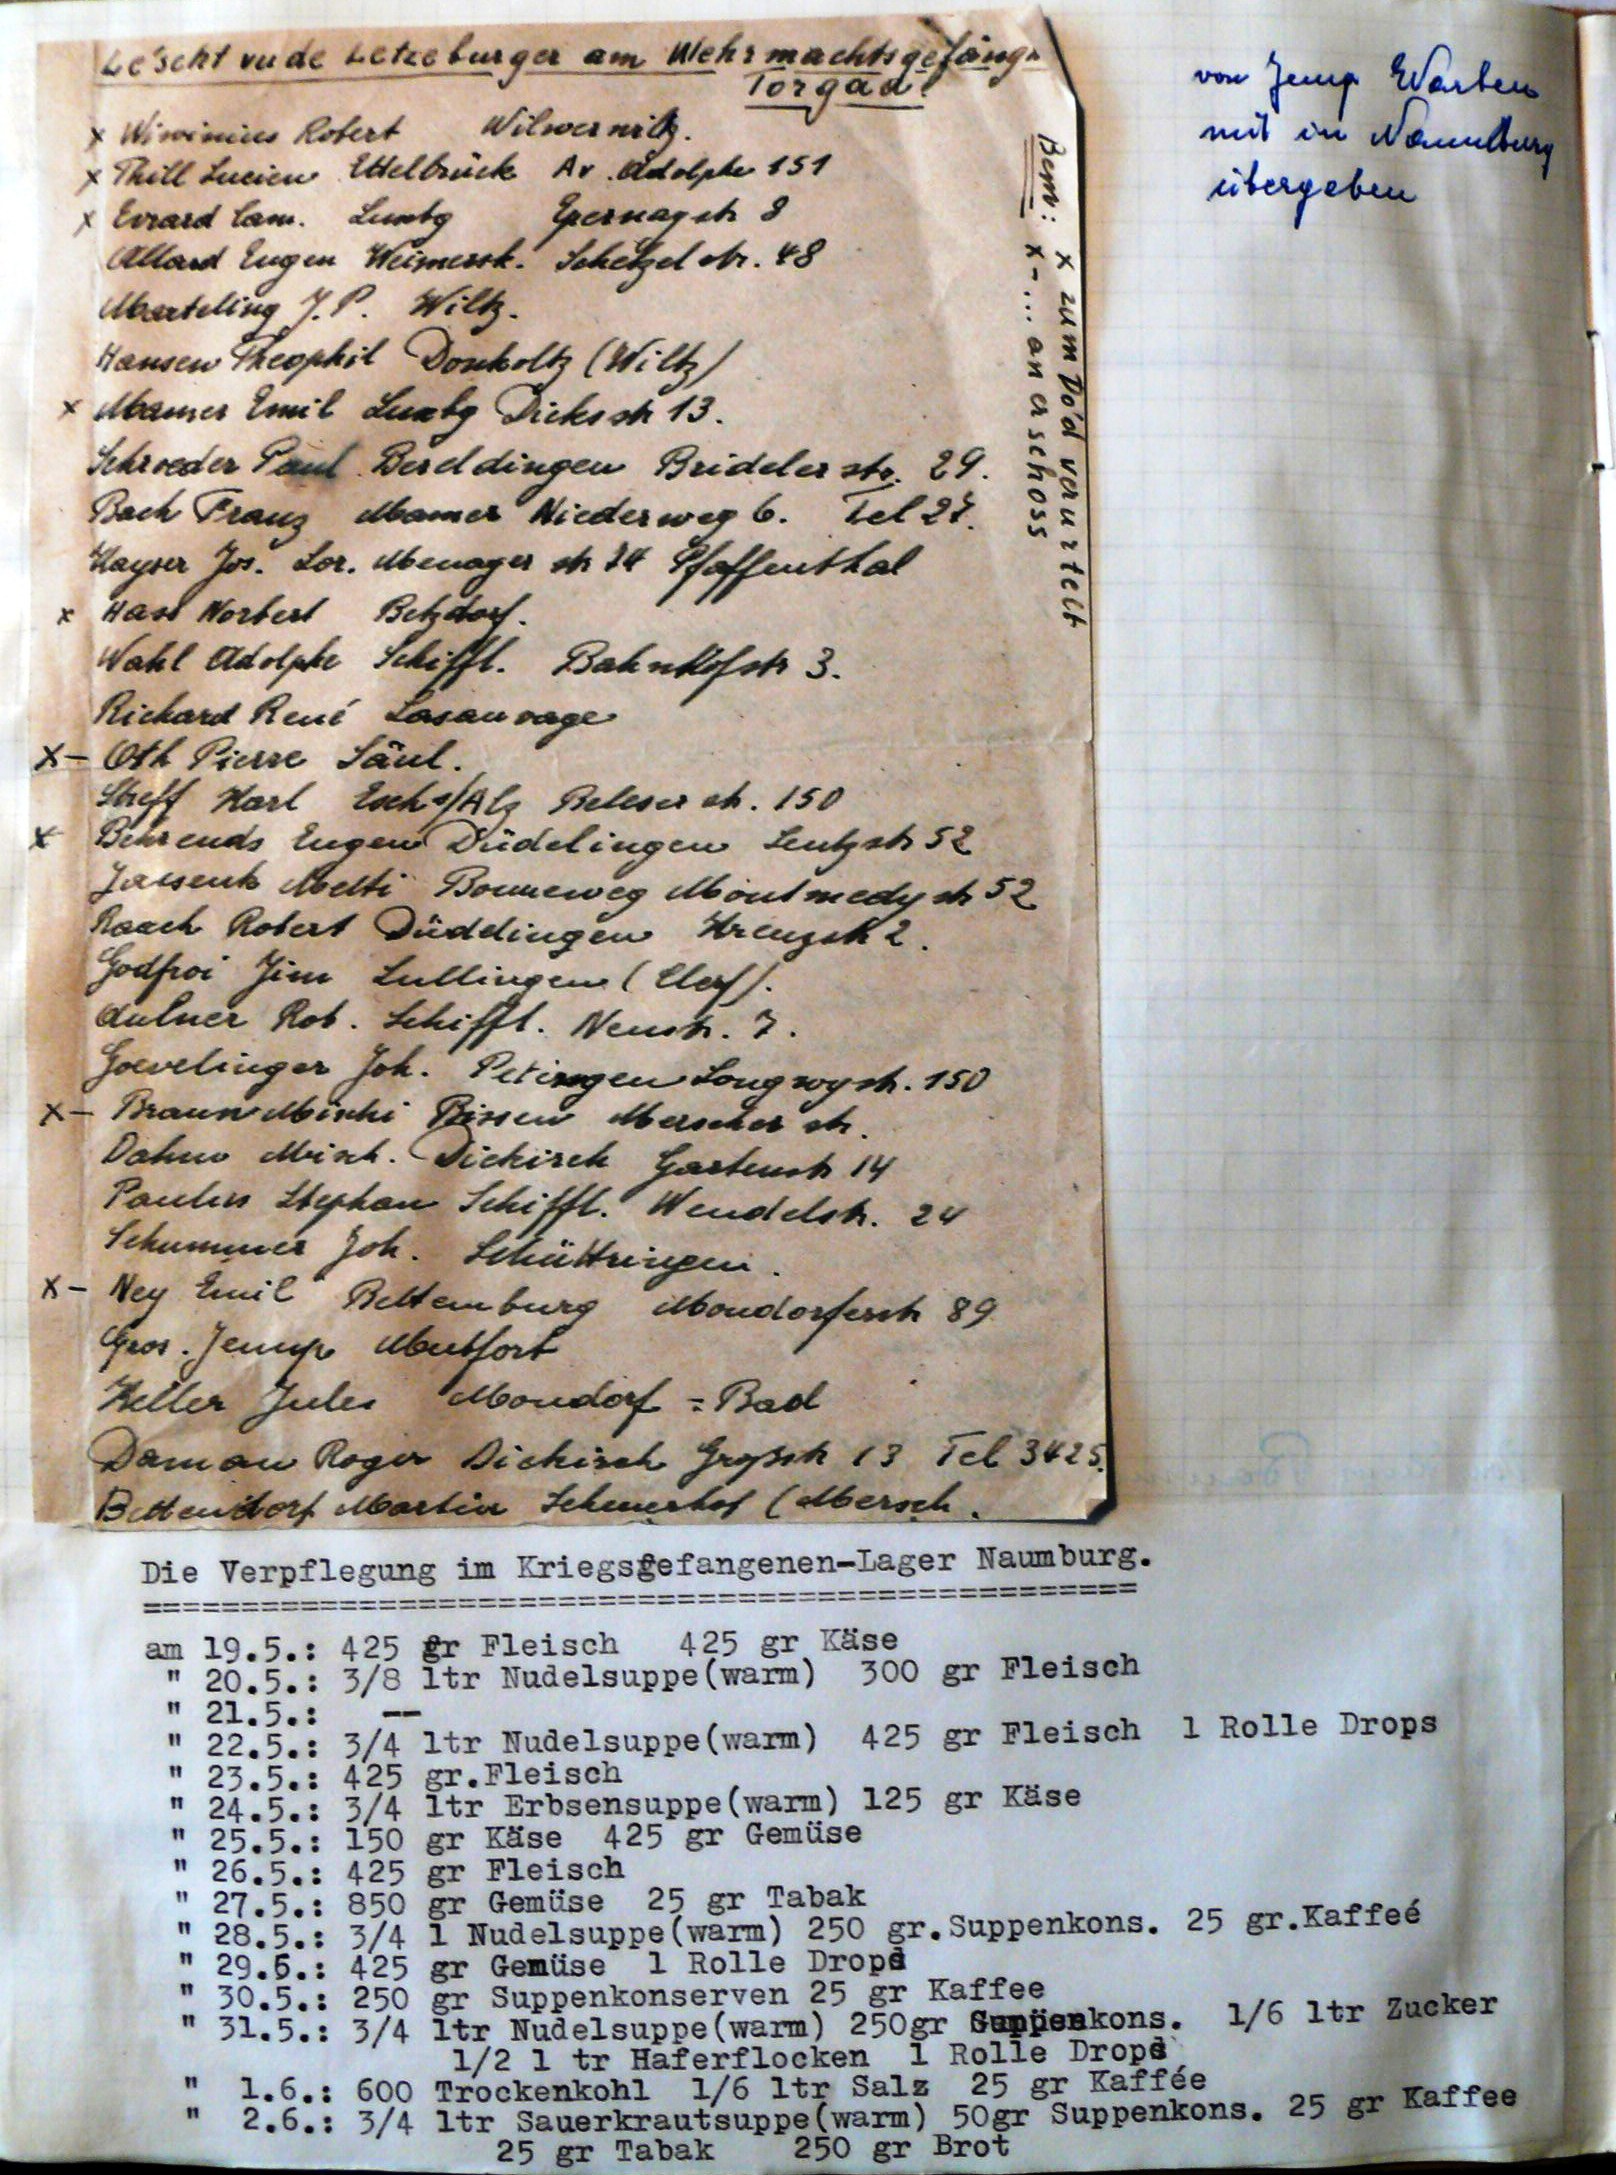 Lëscht vu de Letzeburger am Wehrmachtsgefängn
Torgau!
x Wiwinius Robert Wilwerwiltz.
x Thill Lucien Ettelbrück Av. Adolphe 151
x Evrard Cam. Luxbg Epernaystr 8
Allard Eugen Weimersk. Schetzel str. 48
Marteling J.P. Wiltz.
Hansen Theophil Donkoltz (Wiltz)
x Mamer Emil Luxbg Dicksstr 13.
Schroeder Paul Bereldingen Brideler str. 29.
Bach Franz Mamer Niederweg 6. Tel 27.
Kayser Jos. Lor. Menager str 34 Pfaffenthal
x Hass Norbert Betzdorf.
Wahl Adolphe Schiffl. Bahnhofstr 3.
Richard René Lasauvage
x- Oth Pierre Säul.
Steff Karl Esch s/Alz Beleser str. 150
x Behrends Eugen Düdelingen Lentzstr 52
Metti Bonneweg Montmedystr 52
Raach Robert Düddlingen Kreuzstr 2.
Godfroi Jim Lullingen (Clerf).
Aulner Rob. Schiffl. Neustr. 7.
Goevelinger Joh. Petingen Longwystr. 150
x- Braun Mischi Bissen Merscher str.
Dahm Misch. Diekirch Gartenstr 14
Paulus Stephan Schiffl. Wendelstr. 24
Schummer Joh. Schüttringen.
x- Ney Emil Bettemburg Mondorferstr 89
Gros. Jemp Mutfort
Keller Jules Mondorf = Bad
Daman Roger Diekirch Großstr 13 Tel 3425.
Bettendorf Martin Scheuerhof (Mersch.
Bem: x zum Do'd verurtelt
x- ... an erschoss
von Jemp Warken
mit in Naumburg
übergeben
Die Verpflegung im Kriegsgefangenen-Lager Naumburg.
==================================================
am 19.5.: 425 gr Fleisch 425 gr Käse
" 20.5.: 3/8 ltr Nudelsuppe(warm) 300 gr Fleisch
" 21.5.: --
" 22.5.: 3/4 ltr Nudelsuppe(warm) 425 gr Fleisch 1 Rolle Drops
" 23.5.: 425 gr.Fleisch
" 24.5.: 3/4 ltr Erbsensuppe(warm) 125 gr Käse
" 25.5.: 150 gr Käse 425 gr Gemüse
" 26.5.: 425 gr Fleisch
" 27.5.: 850 gr Gemüse 25 gr Tabak
" 28.5.: 3/4 l Nudelsuppe(warm) 250 gr.Suppenkons. 25 gr.Kaffeé
" 29.5.: 425 gr Gemüse 1 Rolle Drops
" 30.5.: 250 gr Suppenkonserven 25 gr Kaffee
" 31.5.: 3/4 ltr Nudelsuppe(warm) 250gr Suppenkons. 1/6 ltr Zucker
1/2 l tr Haferflocken 1 Rolle Drops
" 1.6.: 600 Trockenkohl 1/6 ltr Salz 25 gr Kaffée
" 2.6.: 3/4 ltr Sauerkrautsuppe(warm) 50gr Suppenkons. 25 gr Kaffee
25 gr Tabak 250 gr Brot